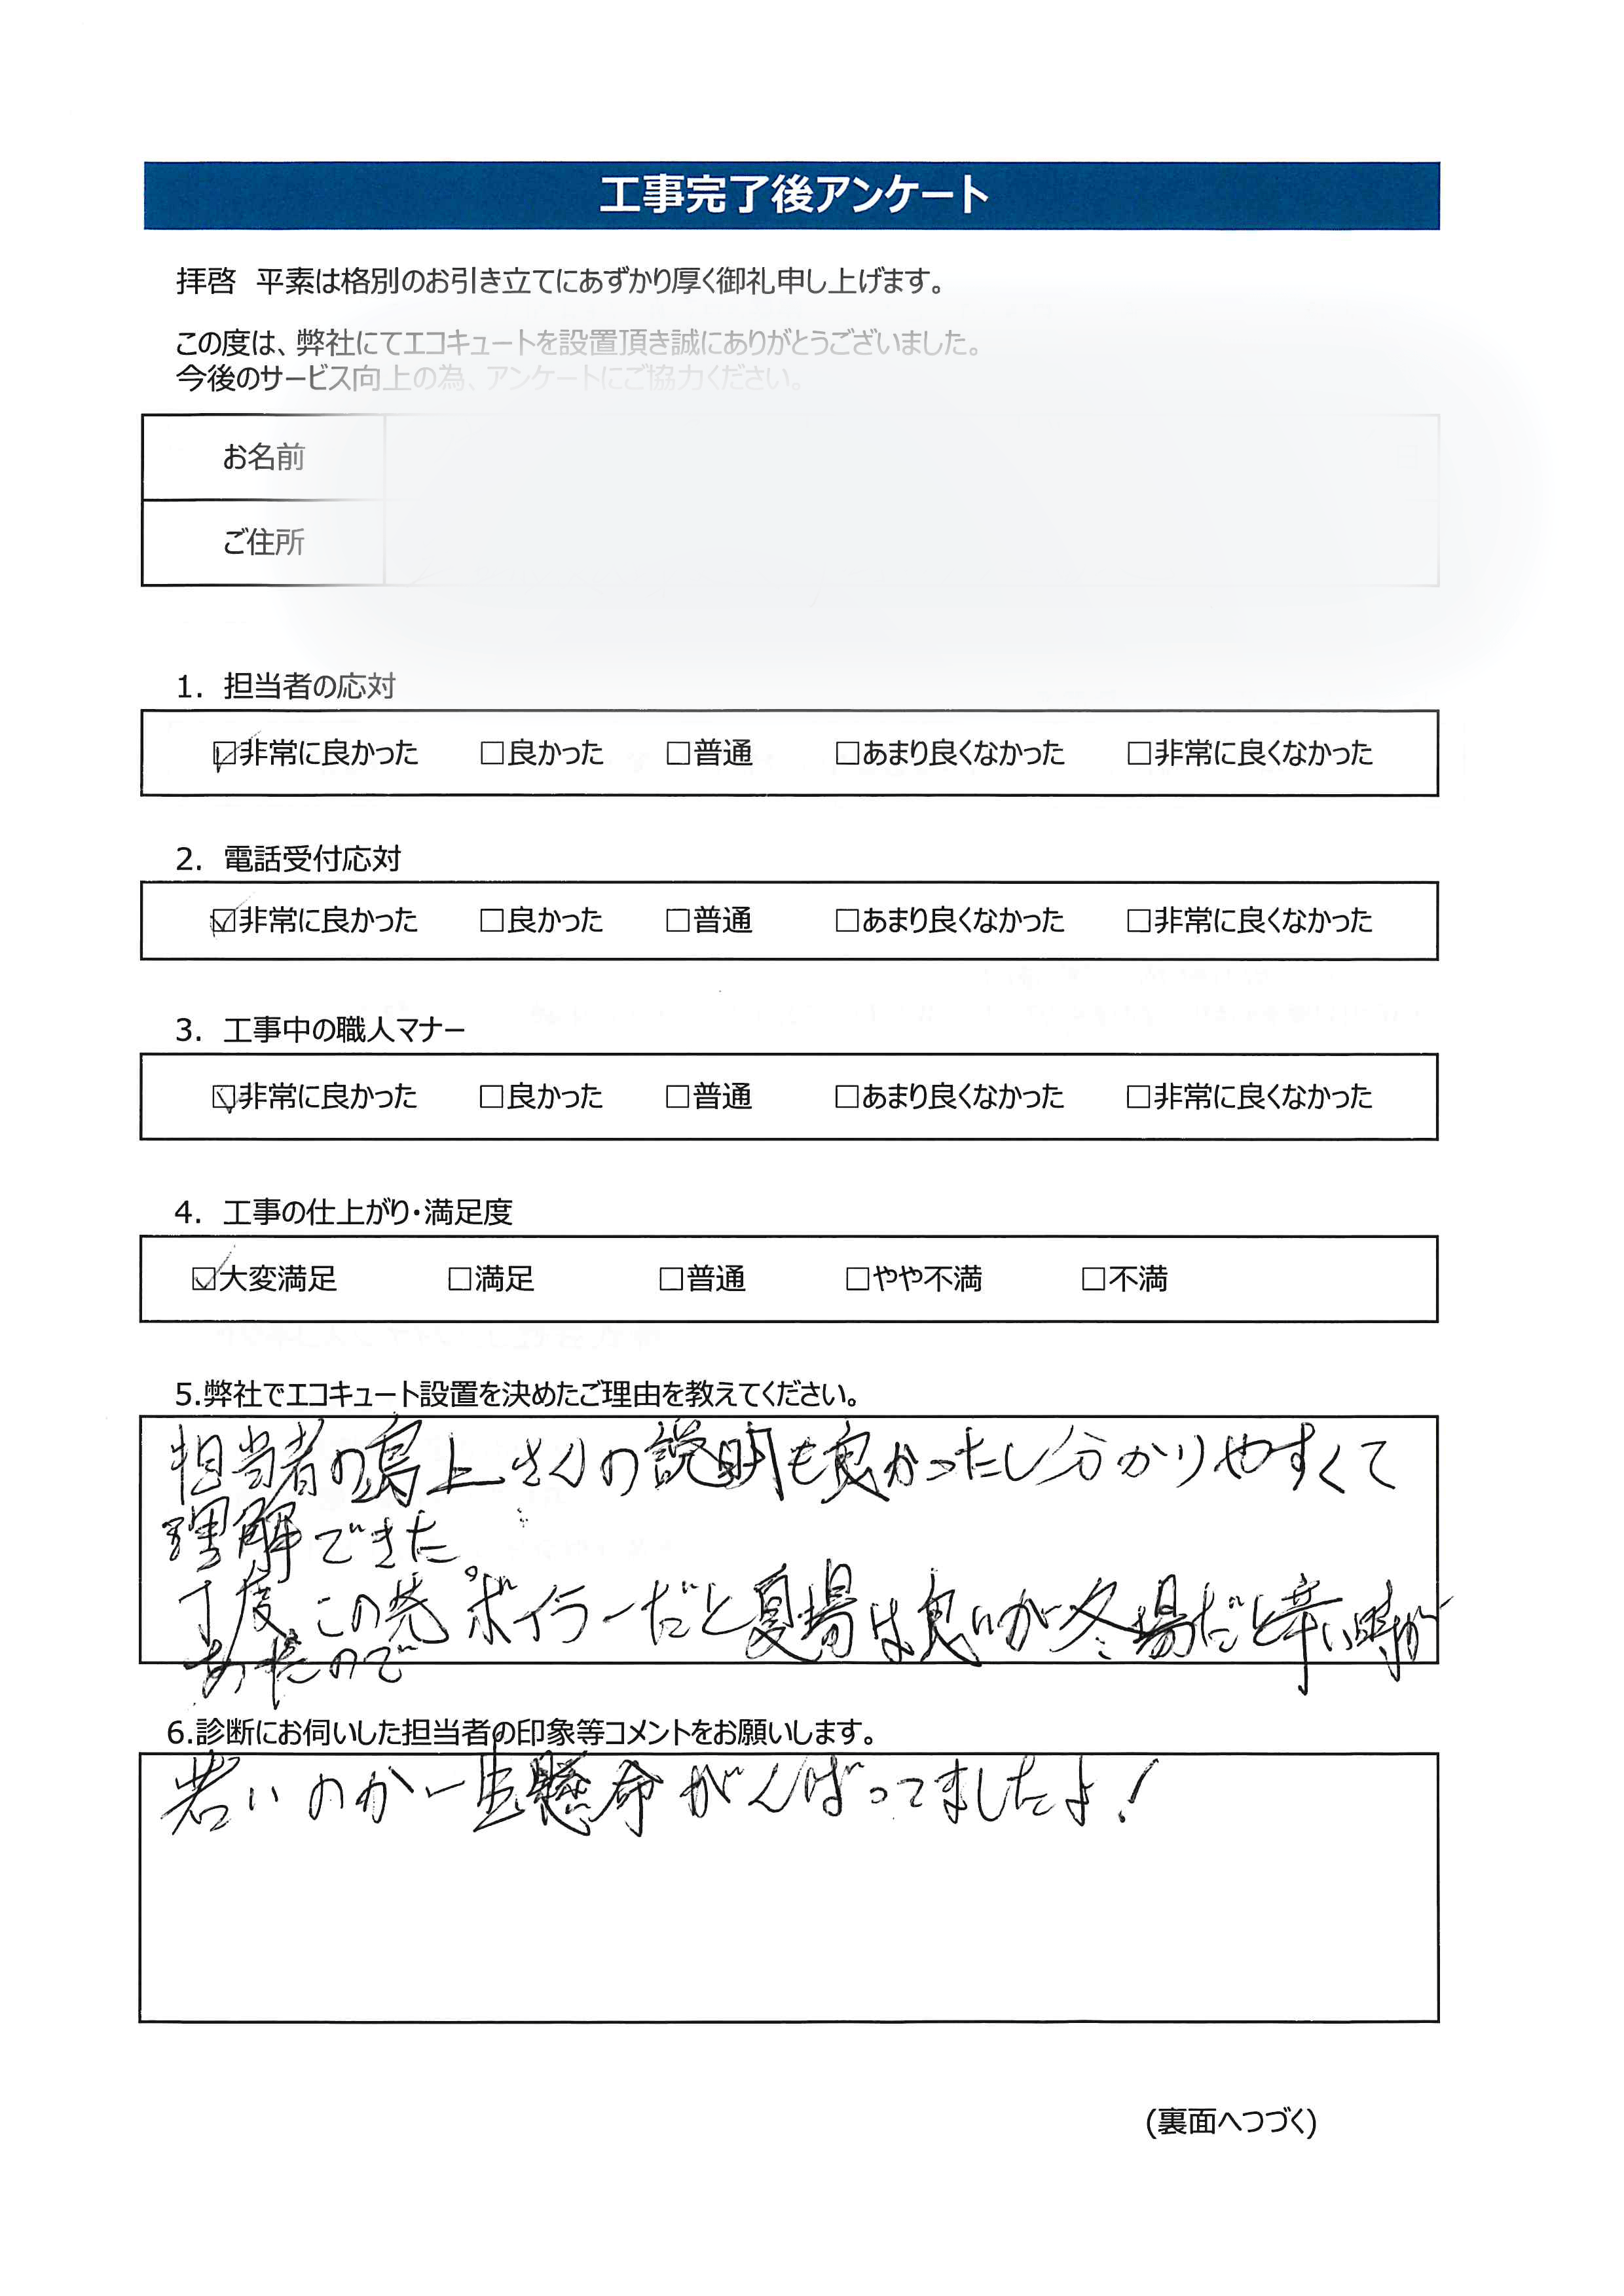 工事完了後アンケート
拝啓　平素は格別のお引き立てにあずかり厚く御礼申し上げます。
この度は、弊社にてエコキュートを設置頂き誠にありがとうございました。
今後のサービス向上の為、アンケートにご協力ください。
お名前
ご住所
1. 担当者の応対
☑非常に良かった　□良かった　□普通　□あまり良くなかった　□非常に良くなかった
2. 電話受付応対
☑非常に良かった　□良かった　□普通　□あまり良くなかった　□非常に良くなかった
3. 工事中の職人マナー
☑非常に良かった　□良かった　□普通　□あまり良くなかった　□非常に良くなかった
4. 工事の仕上がり・満足度
☑大変満足　□満足　□普通　□やや不満　□不満
5.弊社でエコキュート設置を決めたご理由を教えてください。
担当者の鳥上さんの説明も良かったし分かりやすくて
理解できた。
丁度この先ボイラーだと夏場は良いが冬場だと辛い時が
あったので
6.診断にお伺いした担当者の印象等コメントをお願いします。
若いのか一生懸命がんばってましたよ！
(裏面へつづく)